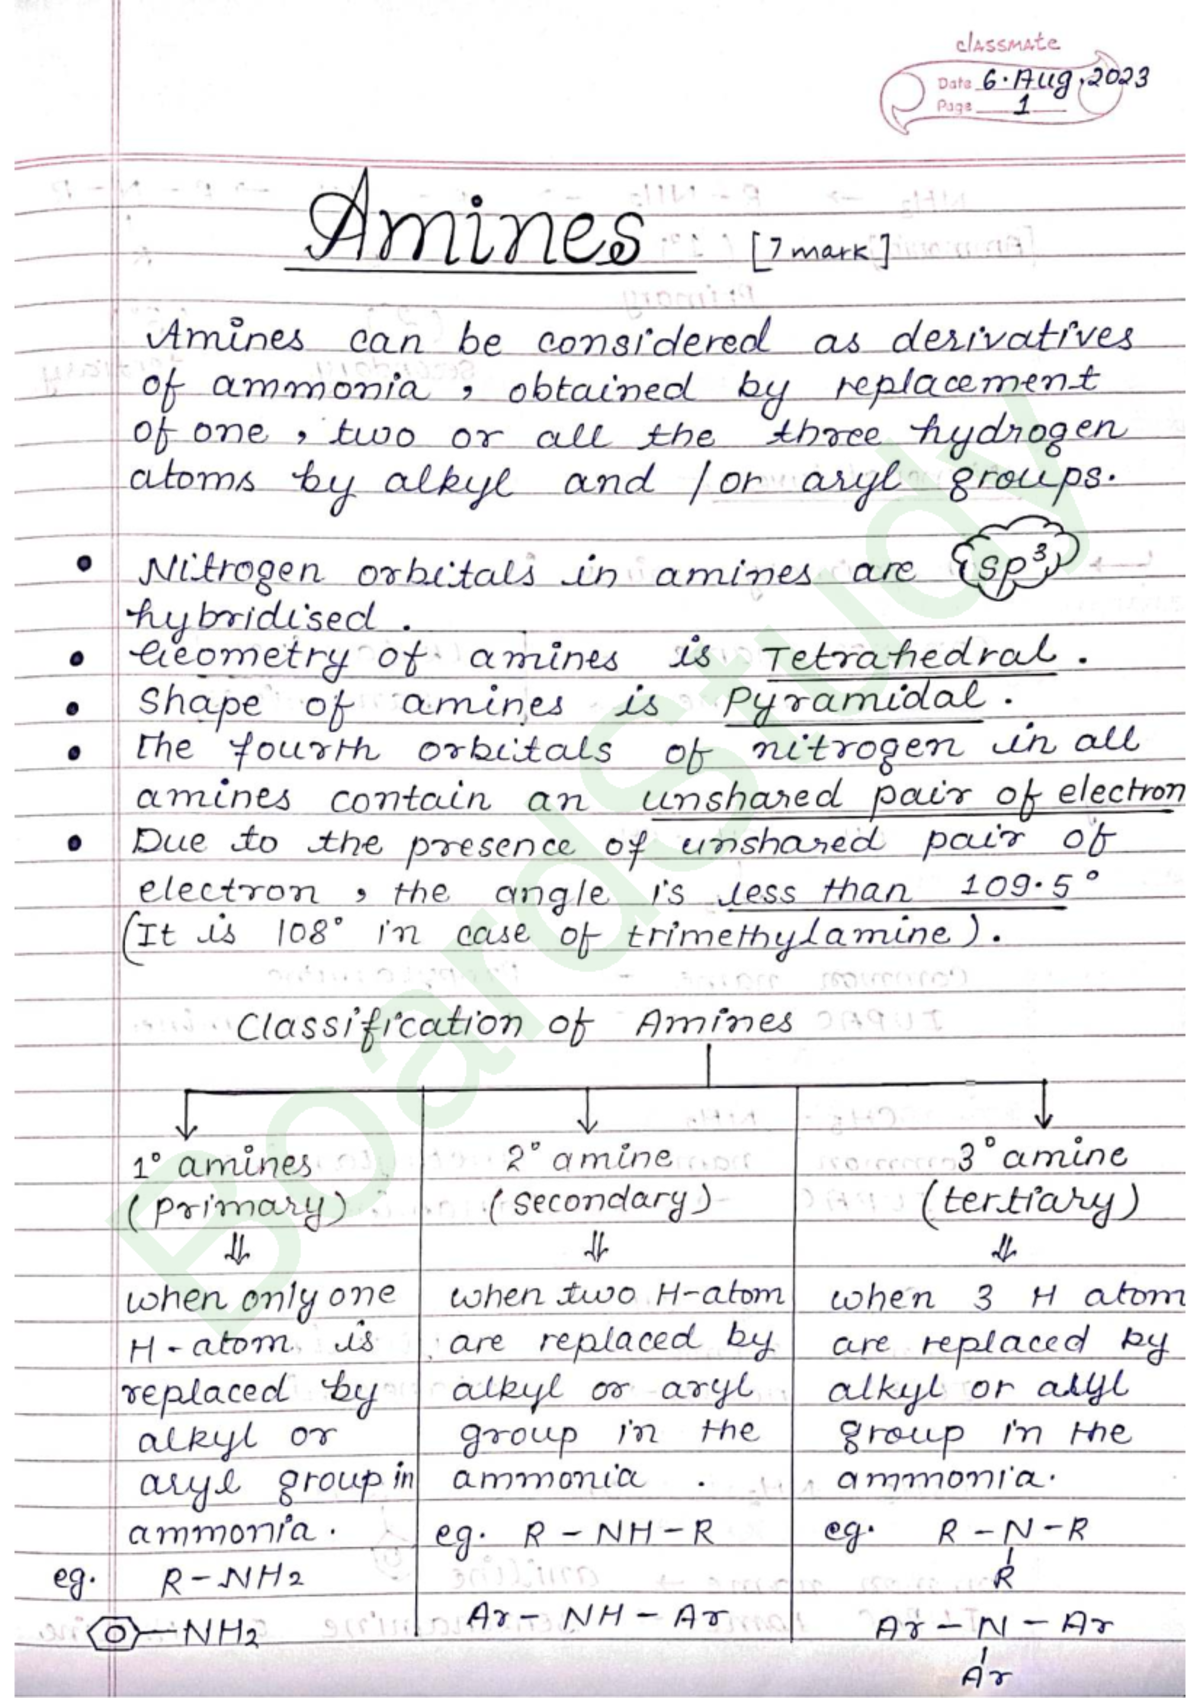 classmate
Date 6.Aug.2023
Page 1
Amines [7 mark]
Amines can be considered as derivatives
of ammonia, obtained by replacement
of one, two or all the three hydrogen
atoms by alkyl and /or aryl groups.
• Nitrogen orbitals in amines are sp³
hybridised.
• Geometry of amines is Tetrahedral.
• Shape of amines is Pyramidal.
• The fourth orbitals of nitrogen in all
amines contain an unshared pair of electron
• Due to the presence of unshared pair of
electron, the angle is less than 109.5°
(It is 108° in case of trimethylamine).
Classification of Amines
1° amines
(primary)
⇓
when only one
H-atom is
replaced by
alkyl or
aryl group in
ammonia.
eg. R-NH2
-NH2
2° amine
(secondary)
⇓
when two H-atom
are replaced by
alkyl or aryl
group in the
ammonia.
eg. R-NH-R
Ar-NH-Ar
3° amine
(tertiary)
⇓
when 3 H atom
are replaced by
alkyl or aryl
group in the
ammonia.
eg. R-N-R
R
Ar-N-Ar
Ar
BoardStudy